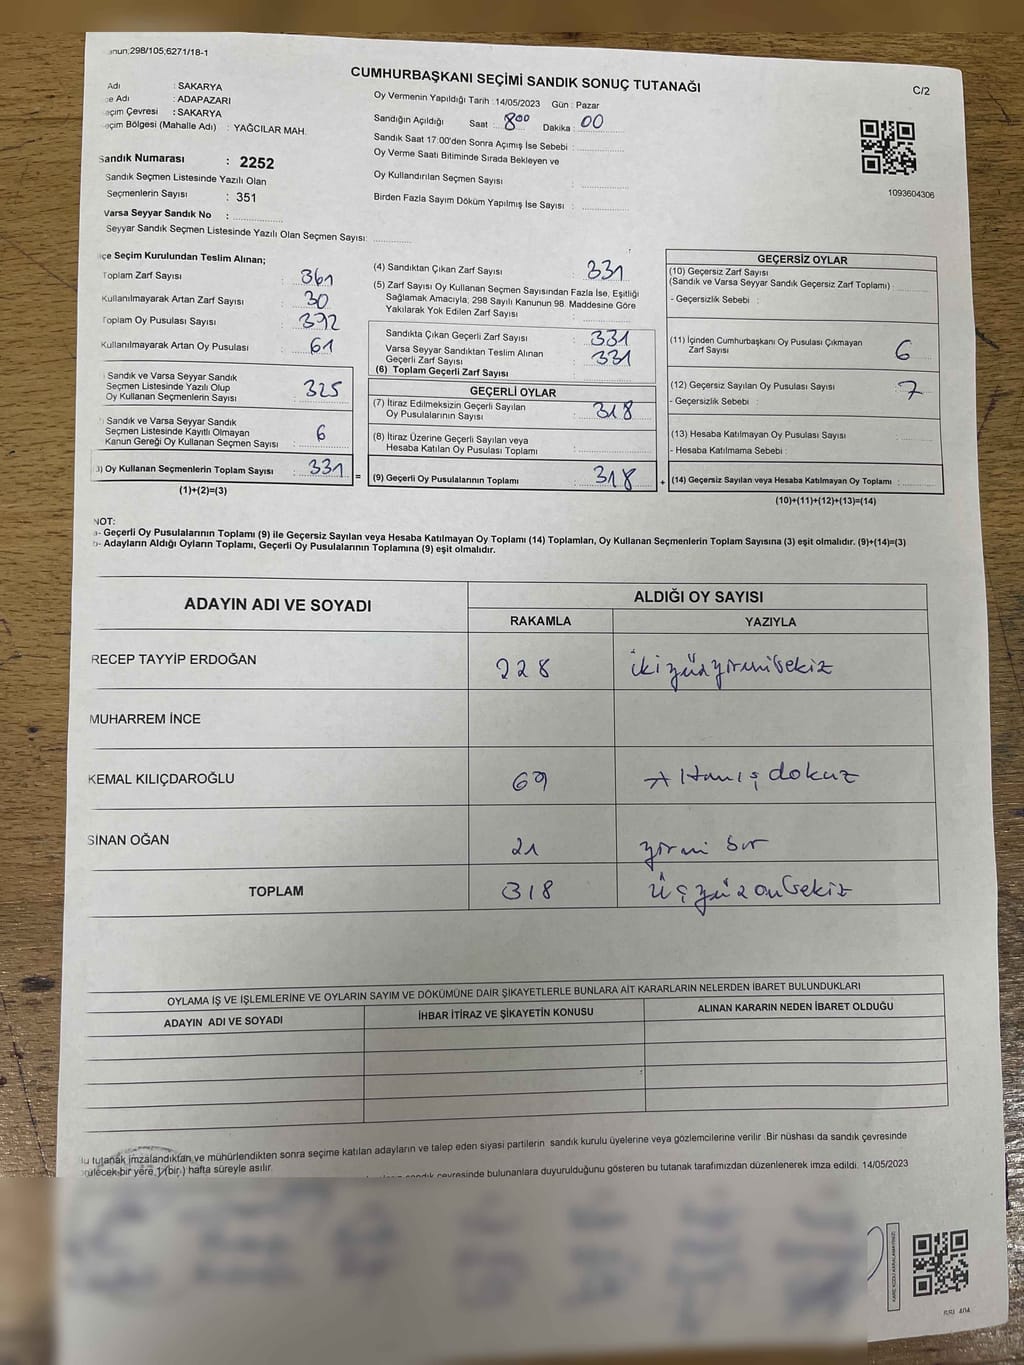 anun,298/105,6271/18-1
CUMHURBAŞKANI SEÇİMİ SANDIK SONUÇ TUTANAĞI
C/2
Adı : SAKARYA
çe Adı : ADAPAZARI
eçim Çevresi : SAKARYA
eçim Bölgesi (Mahalle Adı) : YAĞCILAR MAH.
Sandık Numarası : 2252
Sandık Seçmen Listesinde Yazılı Olan
Seçmenlerin Sayısı : 351
Varsa Seyyar Sandık No :
Seyyar Sandık Seçmen Listesinde Yazılı Olan Seçmen Sayısı:
Oy Vermenin Yapıldığı Tarih :14/05/2023 Gün : Pazar
Sandığın Açıldığı Saat : 8⁰⁰ Dakika : 00
Sandık Saat 17:00'den Sonra Açımış İse Sebebi :
Oy Verme Saati Bitiminde Sırada Bekleyen ve
Oy Kullandırılan Seçmen Sayısı :
Birden Fazla Sayım Döküm Yapılmış İse Sayısı :
1093604306
lçe Seçim Kurulundan Teslim Alınan;
Toplam Zarf Sayısı : 361
Kullanılmayarak Artan Zarf Sayısı : 30
Toplam Oy Pusulası Sayısı : 392
Kullanılmayarak Artan Oy Pusulası : 61
) Sandık ve Varsa Seyyar Sandık
Seçmen Listesinde Yazılı Olup
Oy Kullanan Seçmenlerin Sayısı : 325
) Sandık ve Varsa Seyyar Sandık
Seçmen Listesinde Kayıtlı Olmayan
Kanun Gereği Oy Kullanan Seçmen Sayısı : 6
3) Oy Kullanan Seçmenlerin Toplam Sayısı : 331 =
(1)+(2)=(3)
(4) Sandıktan Çıkan Zarf Sayısı : 331
(5) Zarf Sayısı Oy Kullanan Seçmen Sayısından Fazla İse, Eşitliği
Sağlamak Amacıyla, 298 Sayılı Kanunun 98. Maddesine Göre
Yakılarak Yok Edilen Zarf Sayısı :
Sandıkta Çıkan Geçerli Zarf Sayısı : 331
Varsa Seyyar Sandıktan Teslim Alınan
Geçerli Zarf Sayısı : 331
(6) Toplam Geçerli Zarf Sayısı :
GEÇERLİ OYLAR
(7) İtiraz Edilmeksizin Geçerli Sayılan
Oy Pusulalarının Sayısı : 318
(8) İtiraz Üzerine Geçerli Sayılan veya
Hesaba Katılan Oy Pusulası Toplamı :
(9) Geçerli Oy Pusulalarının Toplamı : 318 +
GEÇERSİZ OYLAR
(10) Geçersiz Zarf Sayısı
(Sandık ve Varsa Seyyar Sandık Geçersiz Zarf Toplamı) :
- Geçersizlik Sebebi :
(11) İçinden Cumhurbaşkanı Oy Pusulası Çıkmayan
Zarf Sayısı : 6
(12) Geçersiz Sayılan Oy Pusulası Sayısı : 7
- Geçersizlik Sebebi :
(13) Hesaba Katılmayan Oy Pusulası Sayısı :
- Hesaba Katılmama Sebebi :
(14) Geçersiz Sayılan veya Hesaba Katılmayan Oy Toplamı :
(10)+(11)+(12)+(13)=(14)
NOT:
a- Geçerli Oy Pusulalarının Toplamı (9) ile Geçersiz Sayılan veya Hesaba Katılmayan Oy Toplamı (14) Toplamları, Oy Kullanan Seçmenlerin Toplam Sayısına (3) eşit olmalıdır. (9)+(14)=(3)
b- Adayların Aldığı Oyların Toplamı, Geçerli Oy Pusulalarının Toplamına (9) eşit olmalıdır.
ADAYIN ADI VE SOYADI ALDIĞI OY SAYISI
RAKAMLA YAZIYLA
RECEP TAYYİP ERDOĞAN 228 ikiyüzyirmisekiz
MUHARREM İNCE
KEMAL KILIÇDAROĞLU 69 Altmış dokuz
SİNAN OĞAN 21 yirmi bir
TOPLAM 318 üçyüzonsekiz
OYLAMA İŞ VE İŞLEMLERİNE VE OYLARIN SAYIM VE DÖKÜMÜNE DAİR ŞİKAYETLERLE BUNLARA AİT KARARLARIN NELERDEN İBARET BULUNDUKLARI
ADAYIN ADI VE SOYADI İHBAR İTİRAZ VE ŞİKAYETİN KONUSU ALINAN KARARIN NEDEN İBARET OLDUĞU
Bu tutanak imzalandıktan ve mühürlendikten sonra seçime katılan adayların ve talep eden siyasi partilerin sandık kurulu üyelerine veya gözlemcilerine verilir .Bir nüshası da sandık çevresinde
rülecek bir yere 1 (bir ) hafta süreyle asılır.
sandık çevresinde bulunanlara duyurulduğunu gösteren bu tutanak tarafımızdan düzenlenerek imza edildi. 14/05/2023